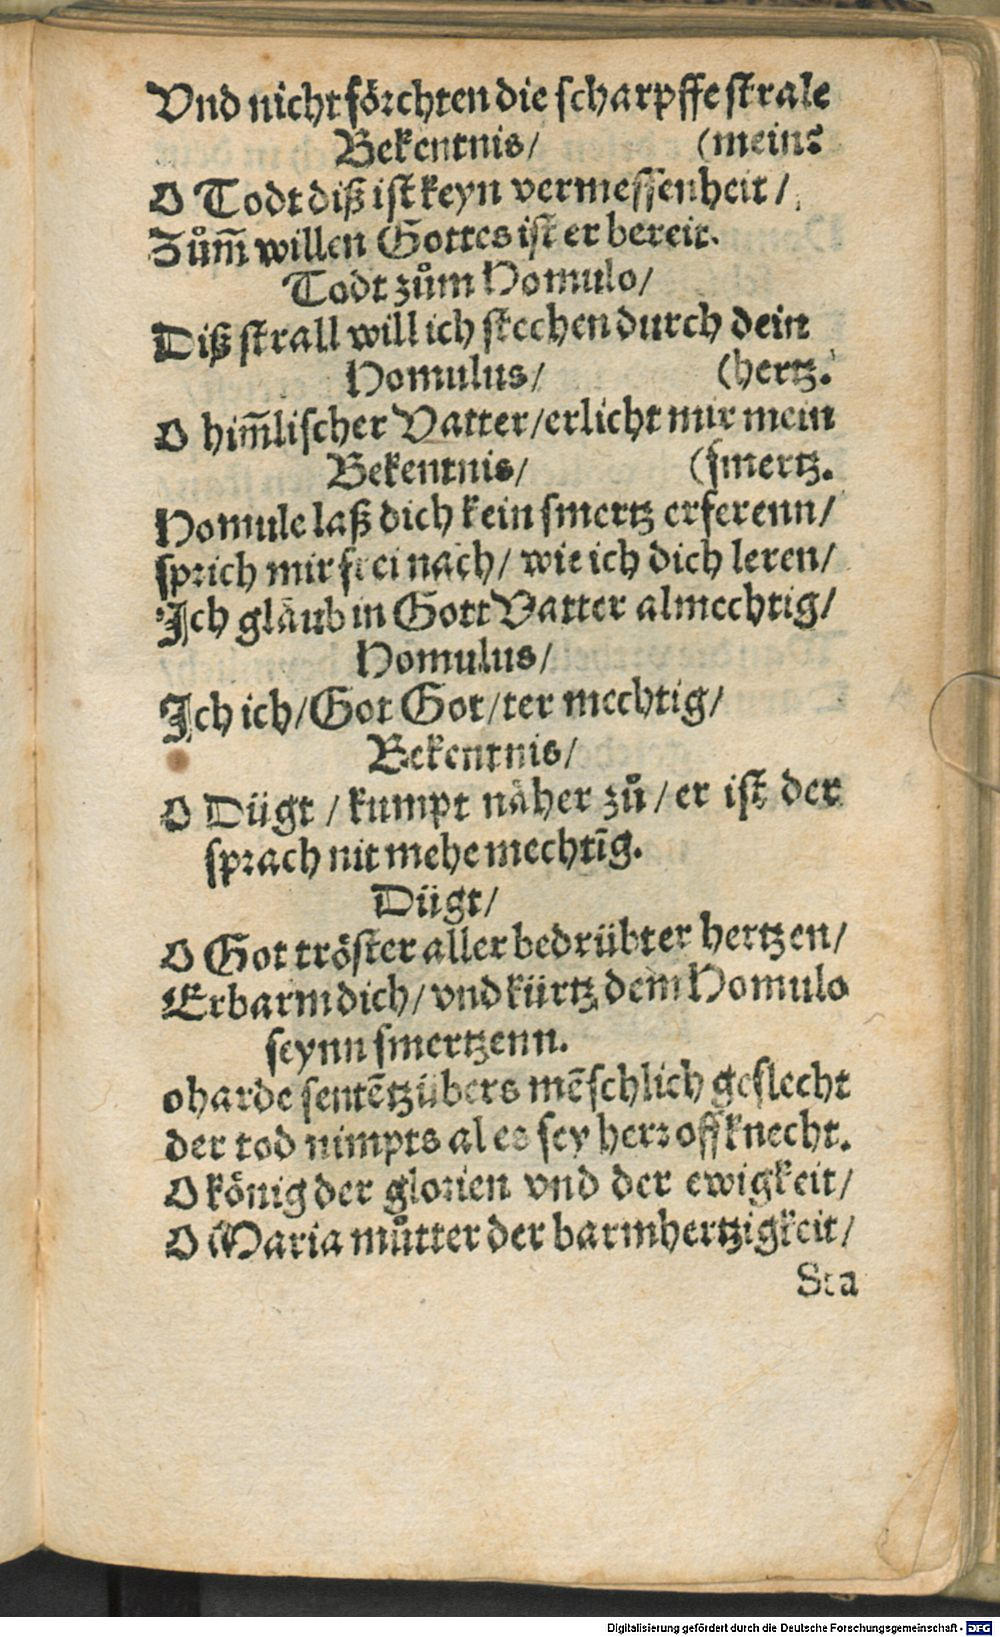 Vnd nicht förchten die scharpffe strale
Bekentnis/ (mein?
O Todt diß ist keyn vermessenheit/
Zům̃ willen Gottes ist er bereit.
Todt zům Homulo/
Diß strall will ich stechen durch dein
Homulus/ (hertz.
O him̃lischer Vatter/erlicht mir mein
Bekentnis/ (smertz.
Homule laß dich kein smertz erferenn/
sprich mir frei nach/ wie ich dich leren/
Ich gläub in Gott Vatter almechtig/
Homulus/
Ich ich/Got Got/ter mechtig/
Bekentnis/
O Dügt / kumpt näher zů/er ist der
sprach nit mehe mechtig.
Dügt/
O Got tröster aller bedrübter hertzen/
Erbarm dich/vnd kürtz dem Homulo
seynn smertzenn.
o harde sentētz übers mēschlich geslecht
der tod nimpts al es sey herr off knecht.
O könig der glorien vnd der ewigkeit/
O Maria můtter der barmhertzigkeit/
Sta
Digitalisierung gefördert durch die Deutsche Forschungsgemeinschaft - DFG